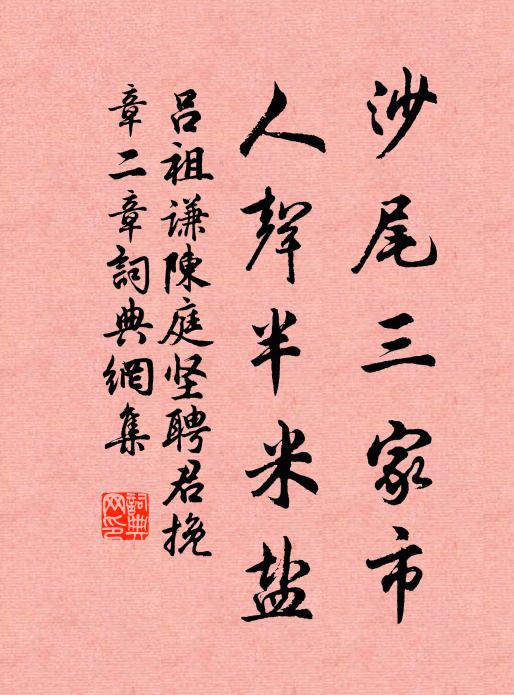 沙尾三家市
人聲半米盐
吕祖谦陳庭坚聘君挽
章二章詞典網集
詞典
网印